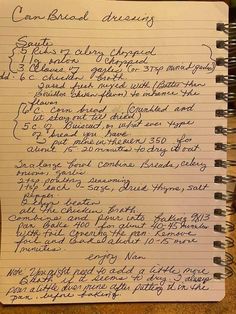 Corn Bread dressing
Saute
5 Ribs of celery Chopped
1 lg onion Chopped
3 Cloves of garlic (or 3 Tsp minced garlic)
6 C chicken broth
I used fresh mixed with (Better than
Bouillon Chicken flavor) to enhance the
flavor
6 C Corn bread (Crumbled and
let stay out till dried)
5 C Biscuit, or what ever type
of bread you have
put them in the oven 350 for
about 15-20 minutes to dry it out.
In a large bowl combine Breads, celery
onions, garlic
2 tsp poultry seasoning
1 tsp each - Sage, dried thyme, salt
pepper
eggs beaten
all the Chicken Broth
Combine and pour into baking 9x13
pan Bake 400° for about 40-45 minutes
with foil Covering the pan Remove
foil and Bake about 10-15 more
minutes.
enjoy Nan
Note: You might need to add a little more
Broth if it seems to dry. I always
pour a little over mine after putting it in the
pan. before baking.